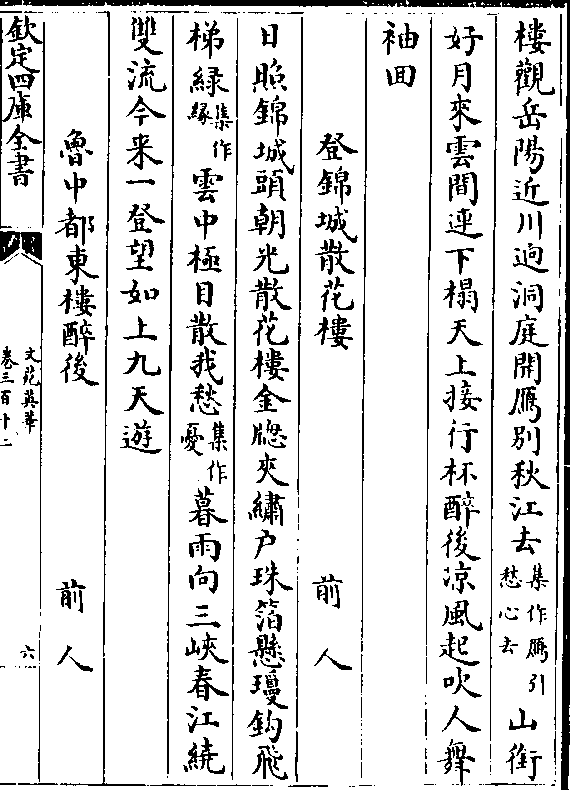 樓觀岳陽近川迥洞庭開鴈別秋江去集作鴈引愁心去山銜
好月來雲間連下榻天上接行杯醉後凉風起吹人舞
袖回
登錦城散花樓 前人
日照錦城頭朝光散花樓金窻夾繡户珠箔懸瓊鈎飛
梯緑集作緣雲中極目散我愁集作憂暮雨向三峽春江繞
雙流今来一登望如上九天遊
魯中都東樓醉後 前人
欽定四庫全書
文苑英華
卷三百十二
六